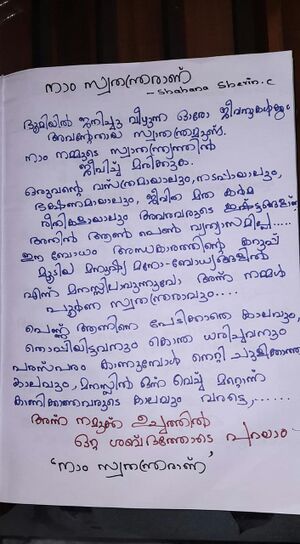 നാം സ്വതന്ത്രരാണ്
- Shahana Sherin.c
ഭൂമിയിൽ ജനിച്ചു വീഴുന്ന ഓരോ ജീവനുകൾക്കും
അവന്റേതായ സ്വാതന്ത്ര്യമുണ്ട്.
നാം നമ്മുടെ സ്വാതന്ത്ര്യത്തിൻ
ജീവിച്ച് മരിക്കുക.
ഒരുവന്റെ വസ്ത്രമായാലും, നടപ്പായാലും,
ഭക്ഷണമായാലും, ജീവിത മത കർമ്മ
രീതികളായാലും അവരവരുടെ ഇഷ്ടങ്ങളാണ്
അതിൽ ആൺ പെൺ വ്യത്യാസമില്ല.....
ഈ ബോധം അന്ധകാരത്തിന്റെ കറുപ്പ്
മൂടിയ മനുഷ്യ മനോ-ബോധങ്ങളിൽ
എന്ന് മനസ്സിലാവുന്നുവോ അന്ന് നമ്മൾ
പൂർണ സ്വതന്ത്രരാവും....
പെണ്ണ് ആണിനെ പേടിക്കാത്ത കാലവും,
തൊപ്പിയിട്ടവനും കൊന്ത ധരിച്ചവനും
പരസ്പരം കാണുമ്പോൾ നെറ്റി ചുളിക്കാത്ത
കാലവും, മനസ്സിൽ ഒന്ന് വെച്ച് മറ്റൊന്ന്
കാണിക്കാത്തവരുടെ കാലവും വരട്ടെ,......
അന്ന് നമുക്ക് ഉച്ചത്തിൽ
ഒറ്റ ശബ്ദത്തോടെ പറയാം
"നാം സ്വതന്ത്രരാണ്"